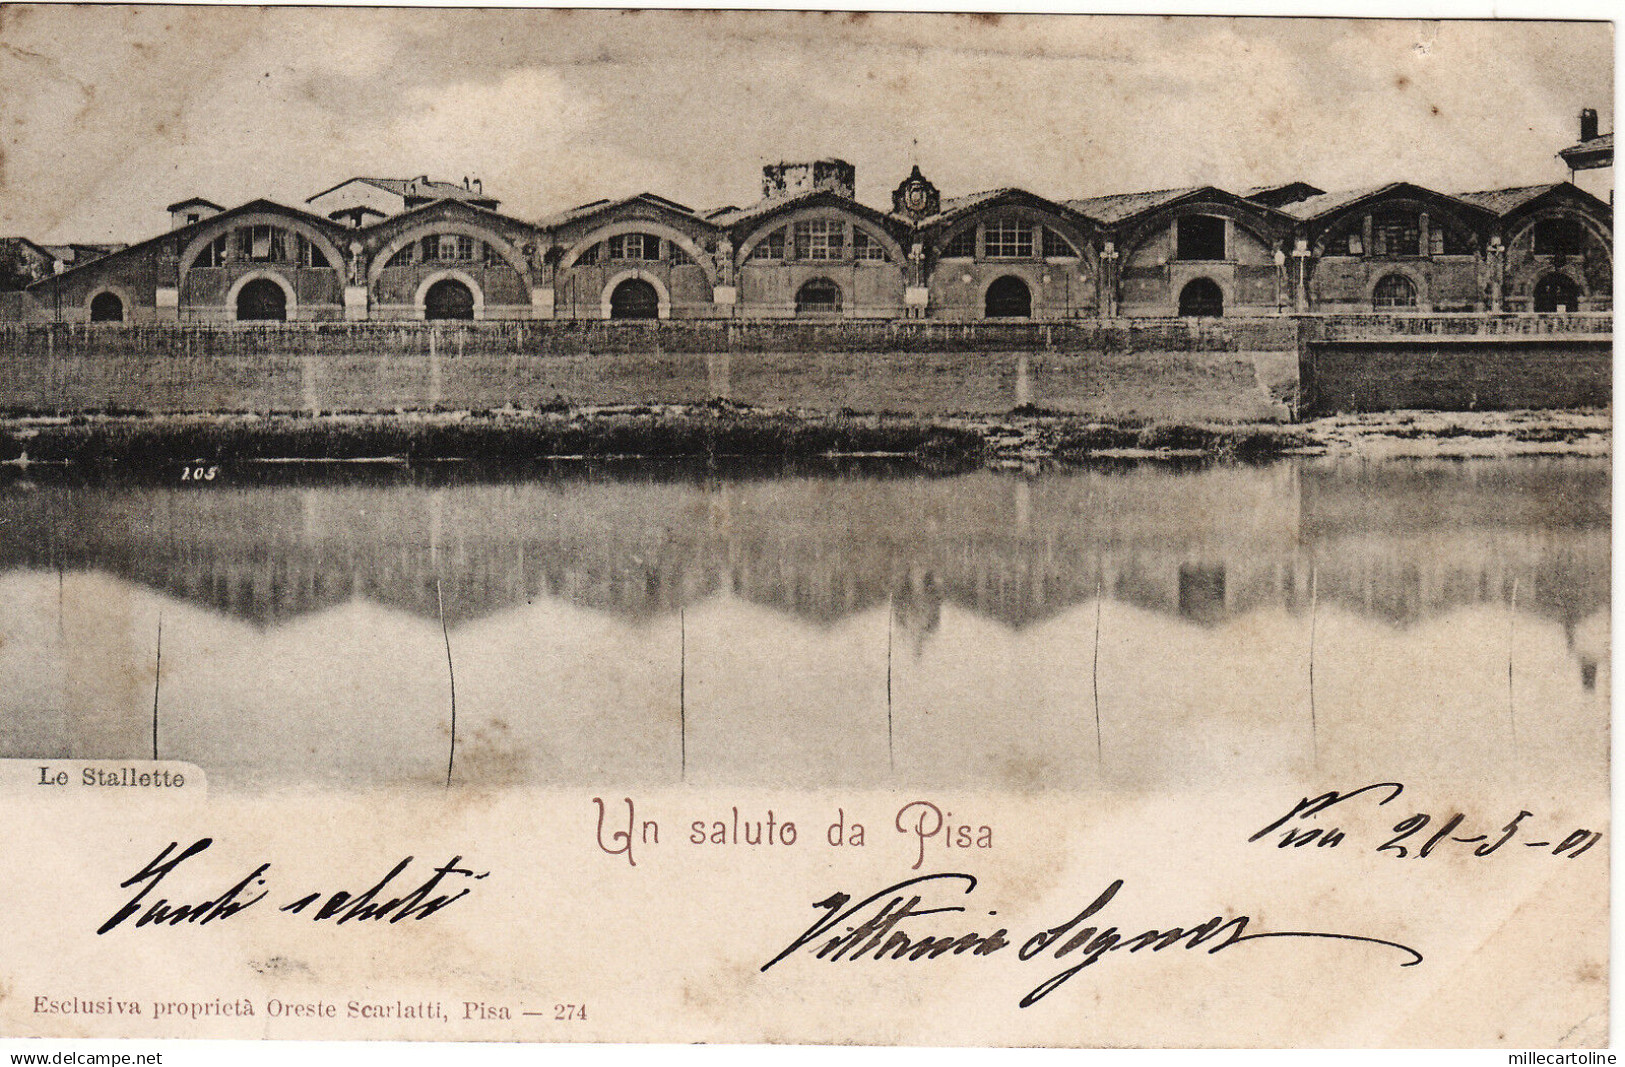 105
Le Stallette
Un saluto da Pisa
Pisa 21-5-01
Tanti saluti
Vittorina
Esclusiva proprietà Oreste Scarlatti, Pisa — 274
delcampe.net
millecartoline